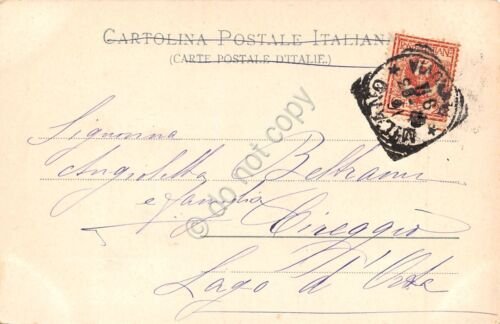 CARTOLINA POSTALE ITALIANA
(CARTE POSTALE D'ITALIE.)
MILANO
Signorina
Angioletta Beltrami
e famiglia
Cireggio
Lago d'Orta
© do not copy